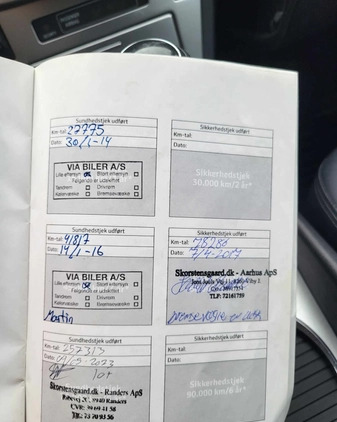 Sundhedstjek udført
Km-tal: 27775
Dato: 30/1-14
VIA BILER A/S
Lille eftersyn
Stort eftersyn
Følgende er udskiftet
Tandrem
Drivrem
Kølervæske
Bremsevæske
Sikkerhedstjek udført
Km-tal:
Dato:
Sikkerhedstjek
30.000 km/2 år*
Sundhedstjek udført
Km-tal: 41817
Dato: 14/1-16
VIA BILER A/S
Lille eftersyn
Stort eftersyn
Følgende er udskiftet
Tandrem
Drivrem
Kølervæske
Bremsevæske
Martin
Sikkerhedstjek udført
Km-tal: 78280
Dato: 7/4-2017
Skorstensgaard.dk - Aarhus ApS
TLF: 72161759
Sundhedstjek udført
Km-tal:
Dato: 2023
Skorstensgaard.dk - Randers ApS
Sikkerhedstjek udført
Km-tal:
Dato:
Sikkerhedstjek
90.000 km/6 år*